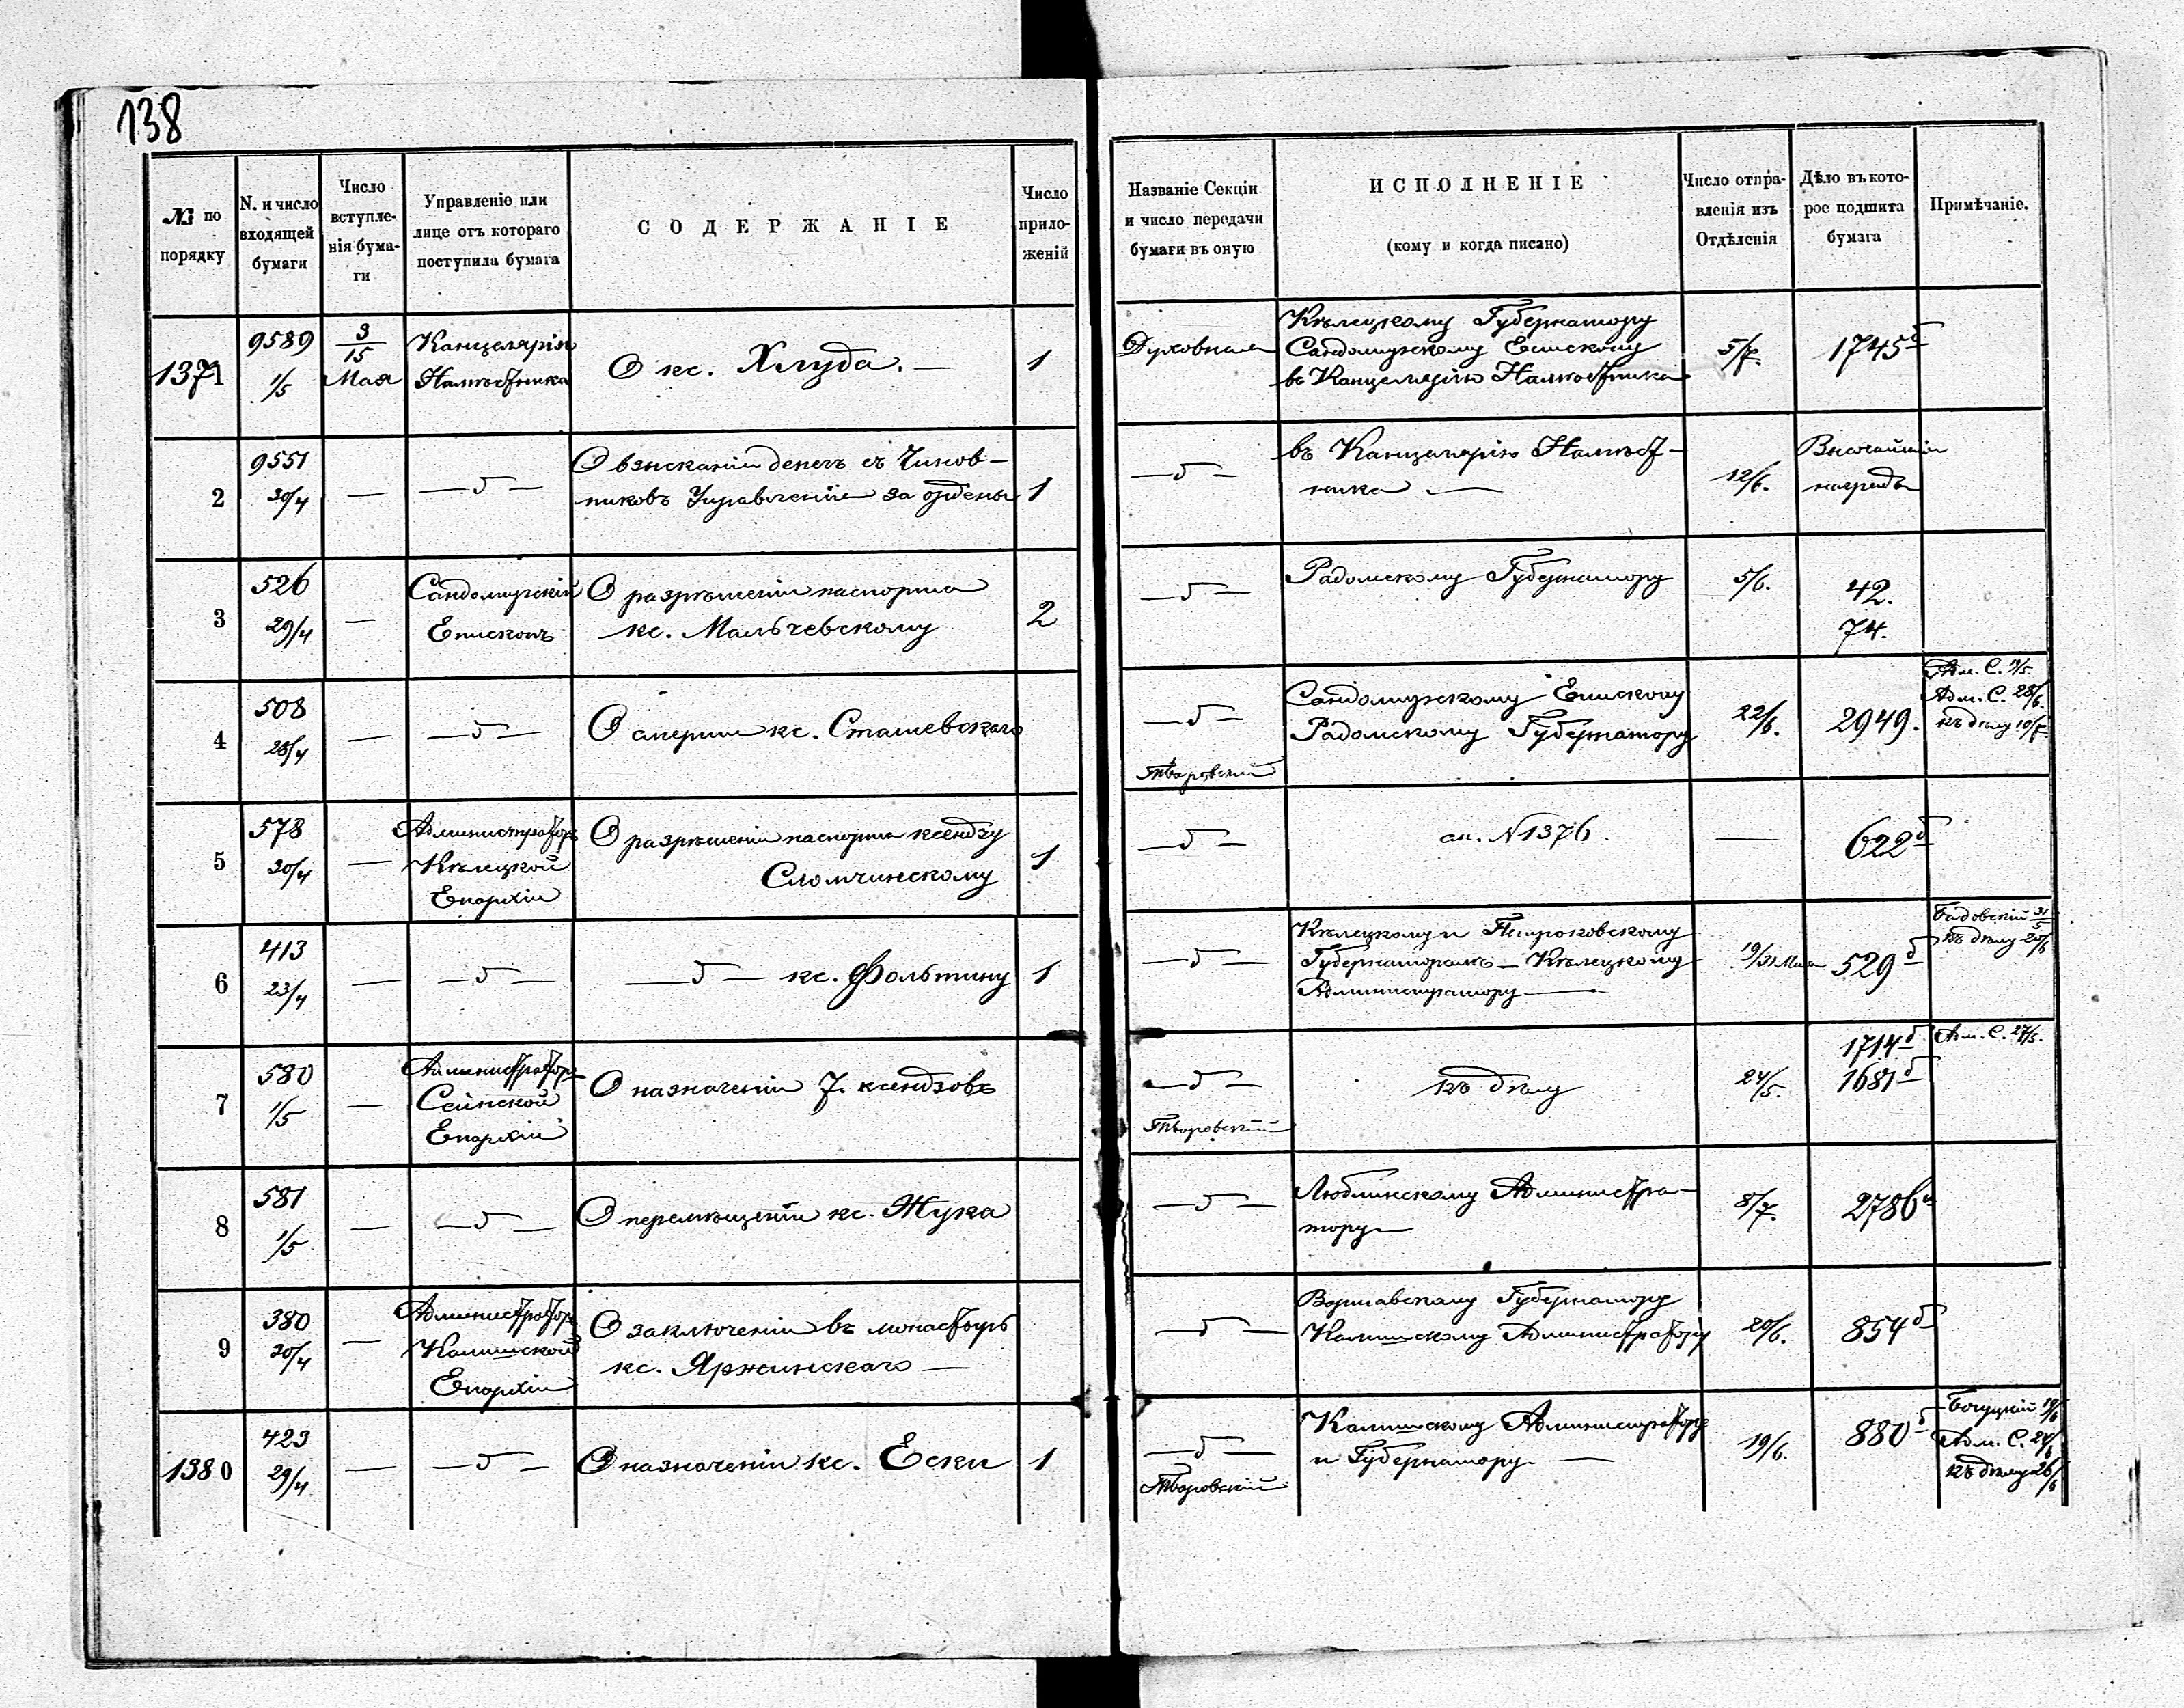 138
№ по порядку | N. и число входящей бумаги | Число вступленія бумаги | Управленіе или лице отъ котораго поступила бумага | СОДЕРЖАНІЕ | Число приложеній | Названіе Секціи и число передачи бумаги въ оную | ИСПОЛНЕНІЕ (кому и когда писано) | Число отправленія изъ Отдѣленія | Дѣло въ которое подшита бумага | Примѣчаніе.
1371 | 9589 1/5 | 3/15 Мая | Канцелярія Намѣстника | О кс. Хлуда. — | 1 | Духовная | Кѣлецкому Губернатору Сандомирскому Епископу въ Канцелярію Намѣстника | 5/7. | 1745 б
2 | 9551 30/4 | — | — " — | О взысканіи денегъ съ Чиновниковъ Управленія за ордены | 1 | — " — | въ Канцелярію Намѣстника — | 12/6. | Высочайшія награды
3 | 526 29/4 | — | Сандомирскій Епископъ | О разрѣшеніи паспорта кс. Мальчевскому | 2 | — " — | Радомскому Губернатору | 5/6. | 42. 74.
4 | 508 28/4 | — | — " — | О смерти кс. Сташевскаго | | — " — Тваровскій | Сандомирскому Епископу Радомскому Губернатору | 22/6. | 2949. | Адм. С. Адм. С. 28/6. къ дѣлу 10/7
5 | 578 30/4 | — | Администраторъ Кѣлецкой Епархіи | О разрѣшеніи паспорта ксендзу Сломчинскому | 1 | — " — | см. N 1376. | — | 622 б
6 | 413 23/4 | — | — " — | — " — кс. Фольтину | 1 | — " — | Кѣлецкому и Петроковскому Губернаторамъ — Кѣлецкому Администратору — | 19/31 Мая | 529 б | 31/5 къ дѣлу 20/6
7 | 580 1/5 | — | Администраторъ Сейнской Епархіи | О назначеніи 7. ксендзовъ | | — " — Тваровскій | къ дѣлу | 24/5. | 1714 б 1681 б | Адм. С. 27/5.
8 | 581 1/5 | — | — " — | О перемѣщеніи кс. Жука | | — " — | Люблинскому Администратору — | 8/7. | 2786 а
9 | 380 30/4 | — | Администраторъ Калишской Епархіи | О заключеніи въ монастырь кс. Яржинскаго — | | — " — | Варшавскому Губернатору Калишскому Администратору | 20/6. | 854 б
1380 | 423 29/4 | — | — " — | О назначеніи кс. Ески | 1 | — " — Тваровскій | Калишскому Администратору и Губернатору — | 19/6. | 880 б | 19/6 Адм. С. 24/6 къ дѣлу 26/6